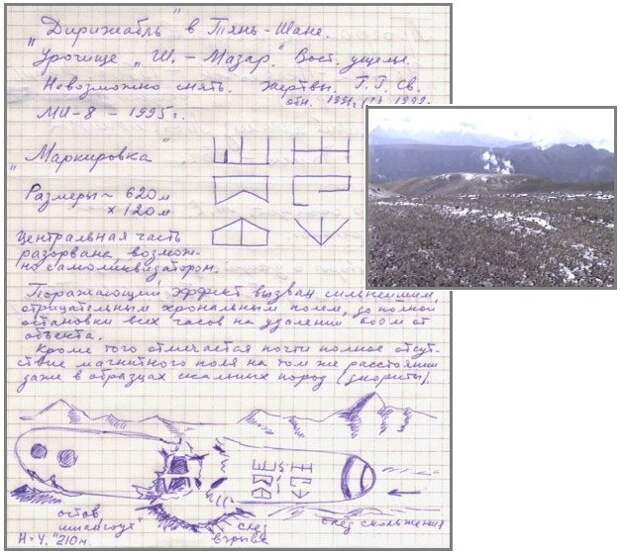 „Дирижабль" в Тянь-Шане.
Урочище „Ш.-Мазар." Вост. ущелье.
Невозможно снять. Жертвы. Г.Г. Св.
МИ-8 - 1995г.
"Маркировка"
Размеры ~ 620м
х 120м
Центральная часть
разорвана, возмож-
но самоликвизатором.
Поражающий эффект вызван сильнейшим,
отрицательным хрональным полем, до полной
остановки всех часов на удалении 600м от
объекта.
Кроме того отмечается почти полное отсут-
ствие магнитного поля на том же расстоянии
даже в образцах скальных пород (диориты).
остов
след
взрыва
след скольжения
Н-Ч. "210м.